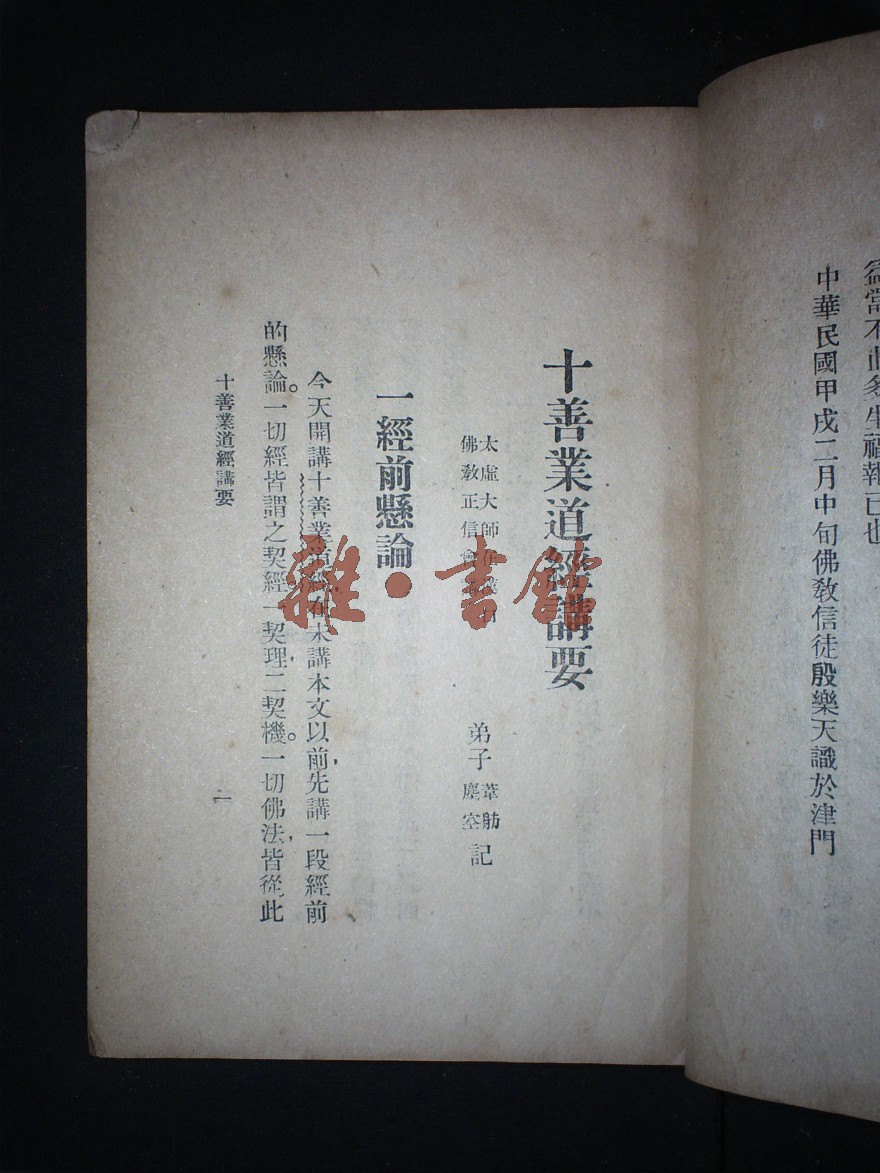 當不
多生福報已也
中華民國甲戌二月中旬佛教信徒殷樂天識於津門
十善業道經講要
太虛大師在漢口
佛教正信會
弟子葦舫塵空記
一經前懸論
今天開講十善業道經，在未講本文以前，先講一段經前
的懸論。一切經皆謂之契經，一契理，二契機。一切佛法，皆從此
十善業道經講要
一
雜·書館